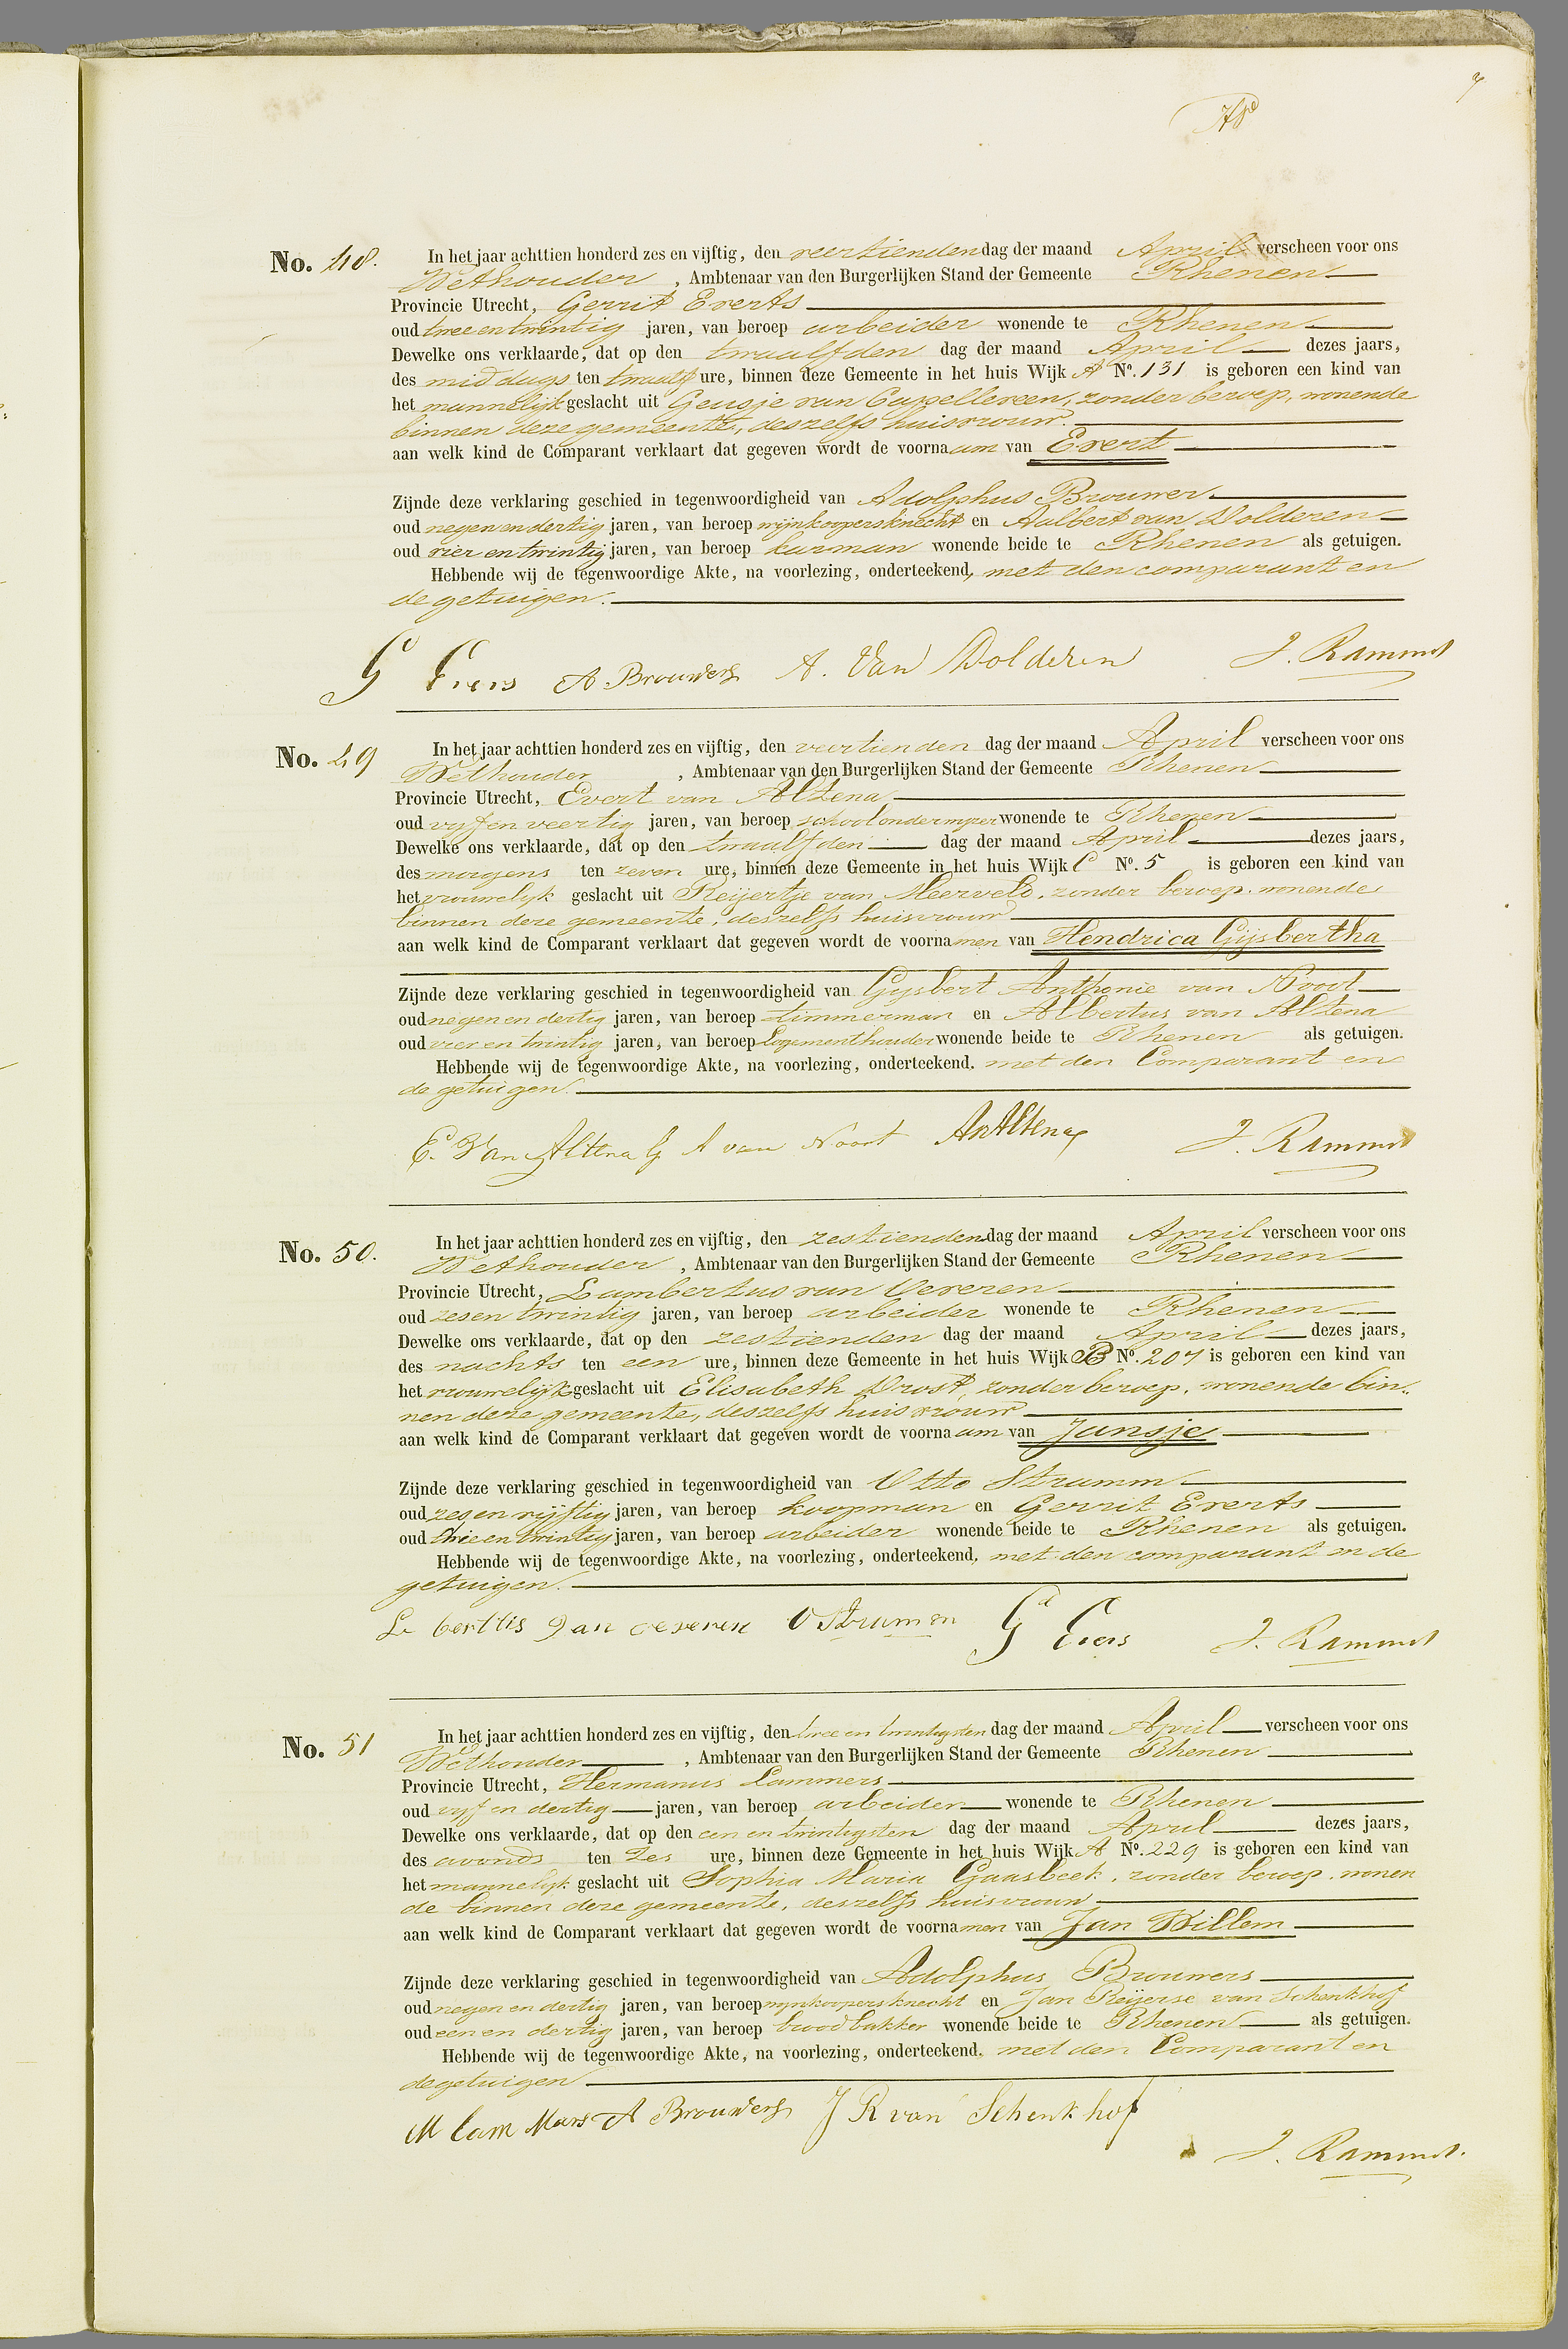 No. 48. In het jaar achttien honderd zes en vijftig, den veertienden dag der maand April verscheen voor ons
Wethouder, Ambtenaar van den Burgerlijken Stand der Gemeente Rhenen
Provincie Utrecht, Gerrit Everts
oud twee en twintig jaren, van beroep arbeider wonende te Rhenen
Dewelke ons verklaarde, dat op den twaalfden dag der maand April dezes jaars,
des middags ten twaalf ure, binnen deze Gemeente in het huis Wijk A No. 131 is geboren een kind van
het mannelijk geslacht uit Geusje van Cappelleveen, zonder beroep, wonende
binnen deze gemeente, deszelfs huisvrouw.
aan welk kind de Comparant verklaart dat gegeven wordt de voornaam van Evert
Zijnde deze verklaring geschied in tegenwoordigheid van Adolphus Brouwer
oud negen en dertig jaren, van beroep wijnkoopersknecht en Aalbert van Dolderen
oud vier en twintig jaren, van beroep karman wonende beide te Rhenen als getuigen.
Hebbende wij de tegenwoordige Akte, na voorlezing, onderteekend, met den comparant en
de getuigen.
G Evers A. Brouwers A. Van Dolderen J. Rammet
No. 49 In het jaar achttien honderd zes en vijftig, den veertienden dag der maand April verscheen voor ons
Wethouder, Ambtenaar van den Burgerlijken Stand der Gemeente Rhenen
Provincie Utrecht, Evert van Altena
oud vyf en veertig jaren, van beroep schoolonderwyzer wonende te Rhenen
Dewelke ons verklaarde, dat op den twaalfden dag der maand April dezes jaars,
des morgens ten zeven ure, binnen deze Gemeente in het huis Wijk C No. 5 is geboren een kind van
het vrouwelyk geslacht uit Reijertje van Meerveld, zonder beroep, wonende
binnen deze gemeente, deszelfs huisvrouw
aan welk kind de Comparant verklaart dat gegeven wordt de voornamen van Hendrica Gijsbertha
Zijnde deze verklaring geschied in tegenwoordigheid van Gysbert Anthonie van Noort
oud negen en dertig jaren, van beroep timmerman en Albertus van Altena
oud vier en twintig jaren, van beroep Logementhouder wonende beide te Rhenen als getuigen.
Hebbende wij de tegenwoordige Akte, na voorlezing, onderteekend. met den Comparant en
de getuigen.
E. Van Altena G A van Noort AvAltena J. Rammet
No. 50. In het jaar achttien honderd zes en vijftig, den zestienden dag der maand April verscheen voor ons
Wethouder, Ambtenaar van den Burgerlijken Stand der Gemeente Rhenen
Provincie Utrecht, Lambertus van Deveren
oud zes en twintig jaren, van beroep arbeider wonende te Rhenen
Dewelke ons verklaarde, dat op den zestienden dag der maand April dezes jaars,
des nachts ten een ure, binnen deze Gemeente in het huis Wijk B No. 207 is geboren een kind van
het vrouwelijk geslacht uit Elisabeth Drost, zonder beroep, wonende bin-
nen deze gemeente, deszelfs huisvrouw
aan welk kind de Comparant verklaart dat gegeven wordt de voornaam van Jansje
Zijnde deze verklaring geschied in tegenwoordigheid van Otto Stramm
oud zes en vijftig jaren, van beroep koopman en Gerrit Everts
oud drie en twintig jaren, van beroep arbeider wonende beide te Rhenen als getuigen.
Hebbende wij de tegenwoordige Akte, na voorlezing, onderteekend, met den comparant en de
getuigen.
O Strumm G Evers J. Rammet
No. 51 In het jaar achttien honderd zes en vijftig, den twee en twintigsten dag der maand April verscheen voor ons
Wethouder, Ambtenaar van den Burgerlijken Stand der Gemeente Rhenen
Provincie Utrecht, Hermanus Lammers
oud vyf en dertig jaren, van beroep arbeider wonende te Rhenen
Dewelke ons verklaarde, dat op den een en twintigsten dag der maand April dezes jaars,
des avonds ten zes ure, binnen deze Gemeente in het huis Wijk A No. 229 is geboren een kind van
het mannelyk geslacht uit Sophia Maria Gaasbeek, zonder beroep, wonen
de binnen deze gemeente, deszelfs huisvrouw
aan welk kind de Comparant verklaart dat gegeven wordt de voornamen van Jan Willem
Zijnde deze verklaring geschied in tegenwoordigheid van Adolphus Brouwers
oud negen en dertig jaren, van beroep wynkoopersknecht en Jan Reijerse van Schenkhof
oud een en dertig jaren, van beroep broodbakker wonende beide te Rhenen als getuigen.
Hebbende wij de tegenwoordige Akte, na voorlezing, onderteekend. met den Comparant en
de getuigen
M Lam Mars A Brouwers J R van Schenkhof
J. Rammet.